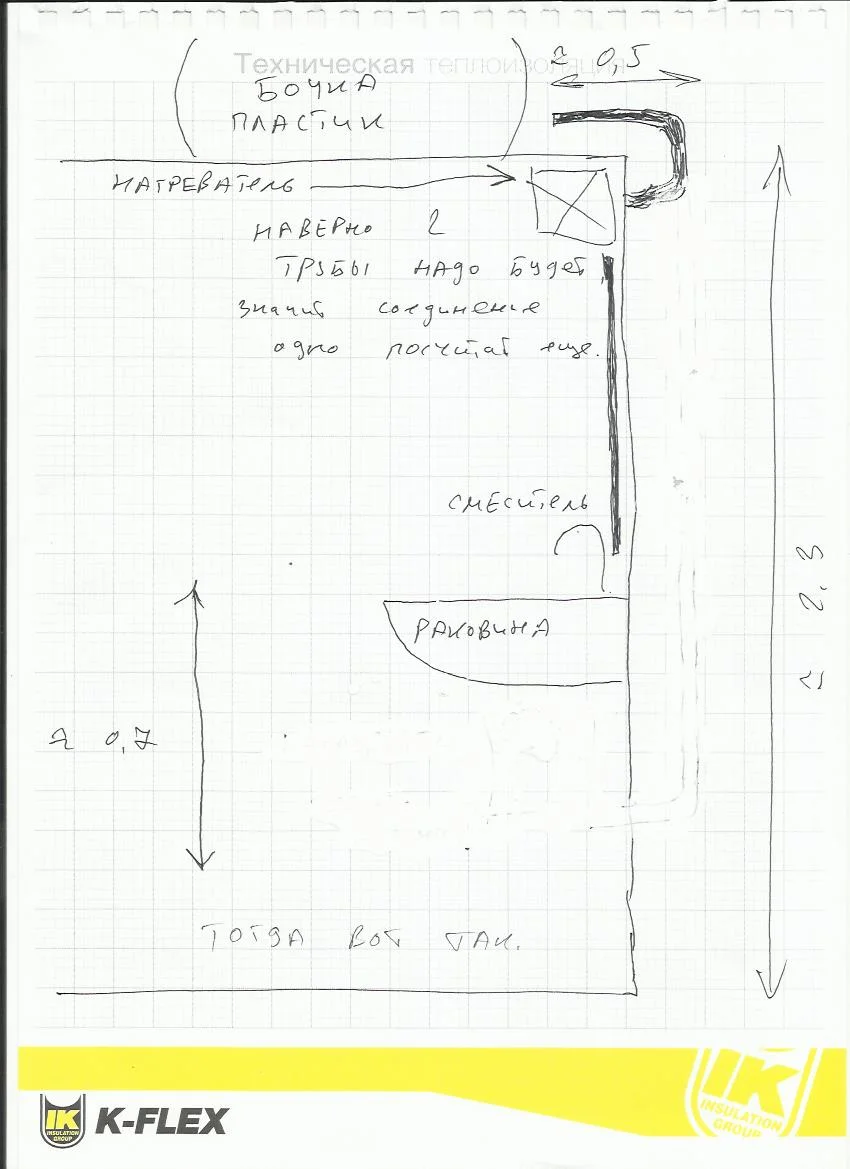 Техническая теплоизоляция
≈ 0,5
БОЧКА
ПЛАСТИК
НАГРЕВАТЕЛЬ
НАВЕРНО 2
ТРУБЫ НАДО БУДЕТ
значит соединение
одно посчитат еще.
СМЕСИТЕЛЬ
РАКОВИНА
≈ 2.3
≈ 0,7
ТОГДА ВОТ ТАК.
IK
INSULATION
GROUP
K-FLEX
IK
INSULATION
GROUP